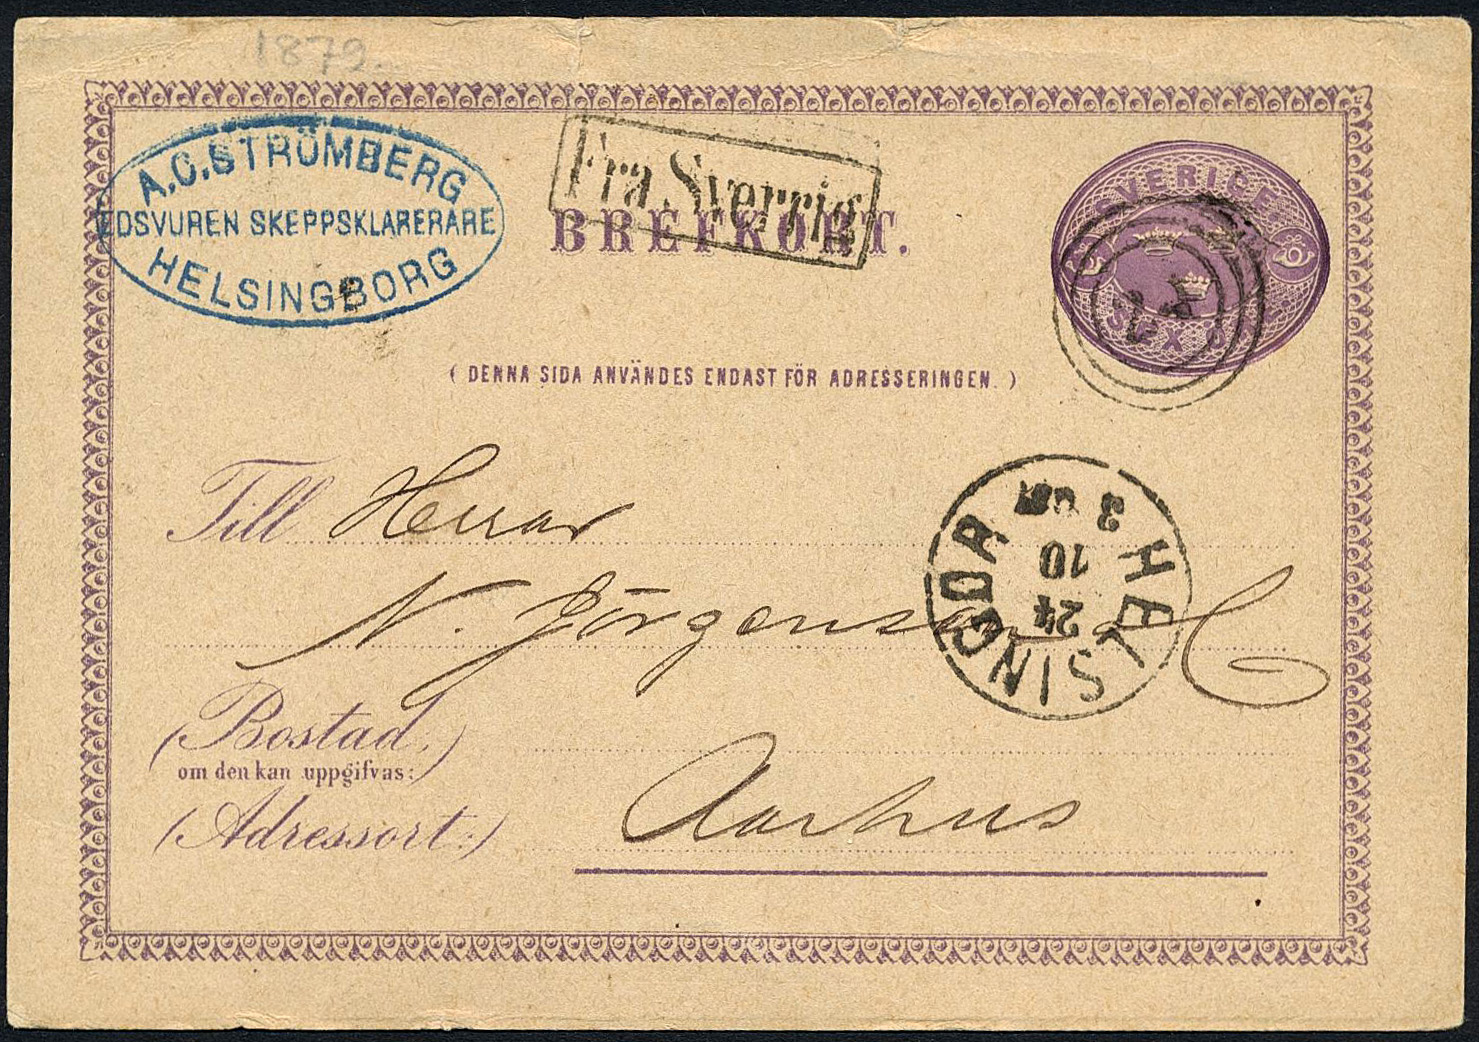 1879
A.C. STRÖMBERG
EDSVUREN SKEPPSKLARERARE
HELSINGBORG
Fra Sverrig
BREFKORT.
SVERIGE
SEX ÖRE
(DENNA SIDA ANVÄNDES ENDAST FÖR ADRESSERINGEN.)
HELSINGÖR
3
10
24
Till Herrar
N. Jörgensen & C
(Bostad,)
om den kan uppgifvas:
(Adressort:) Aarhus